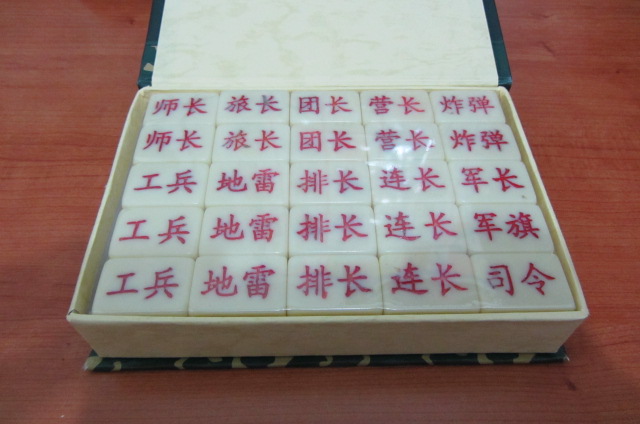 师长 旅长 团长 营长 炸弹
师长 旅长 团长 营长 炸弹
工兵 地雷 排长 连长 军长
工兵 地雷 排长 连长 军旗
工兵 地雷 排长 连长 司令